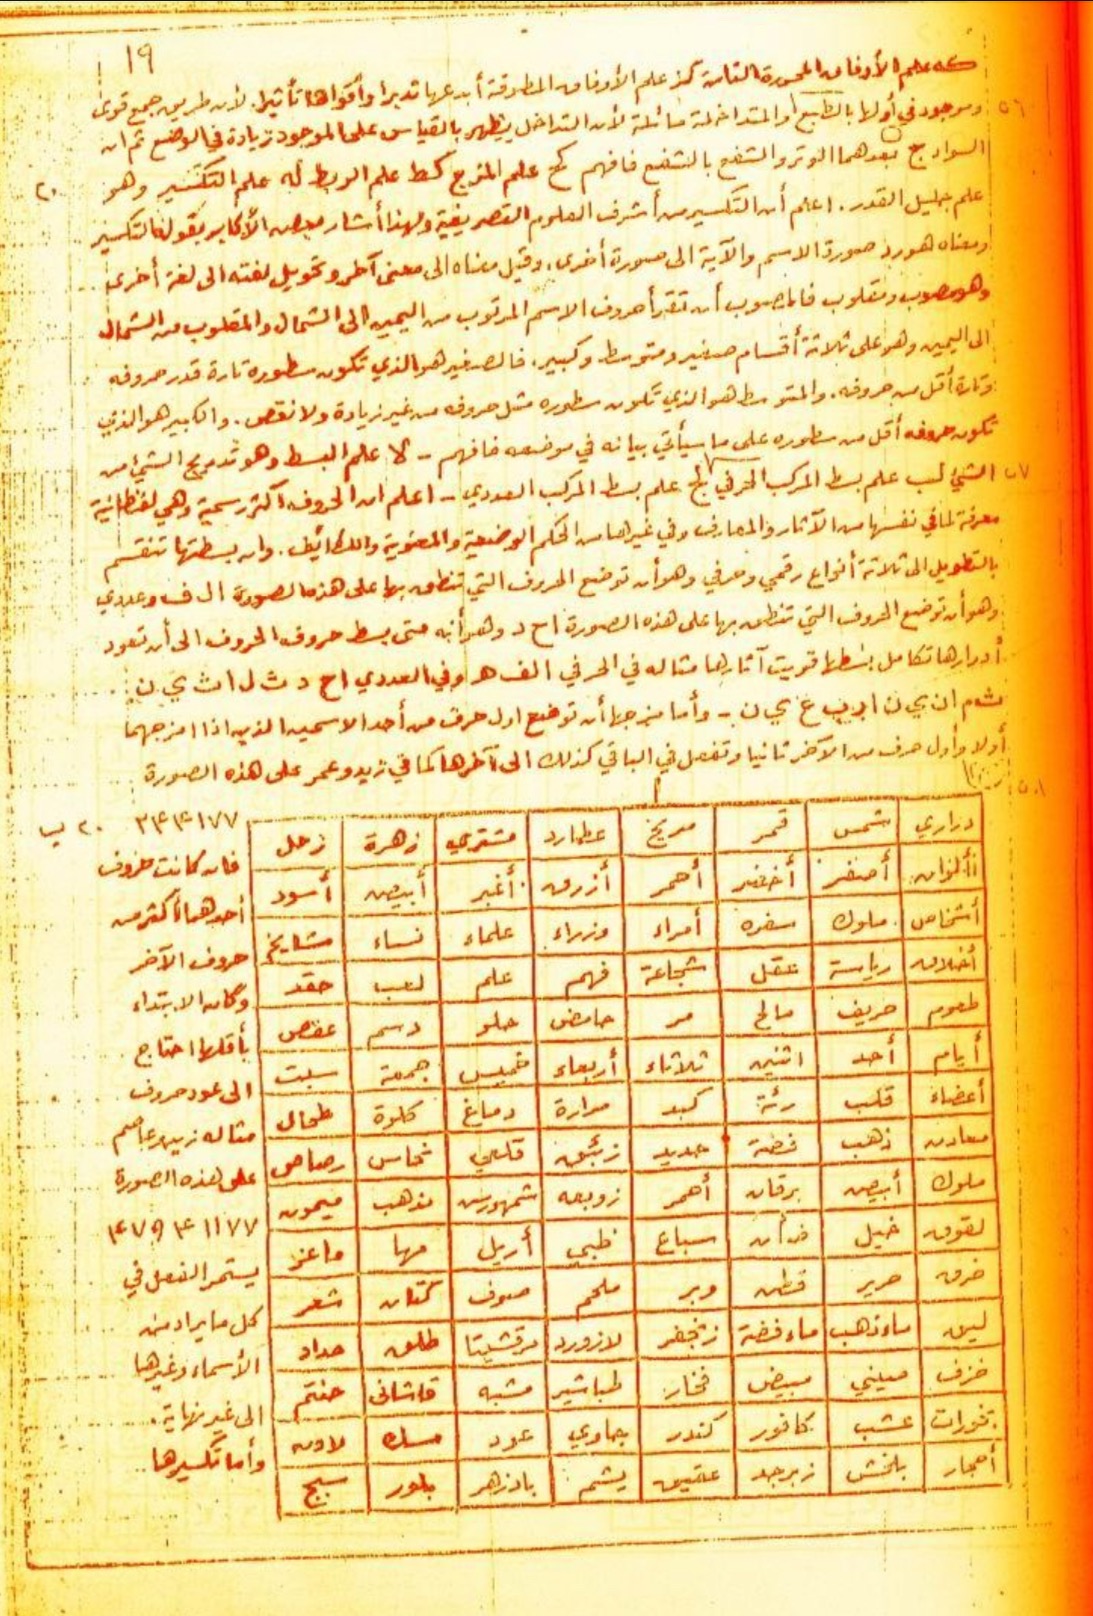 19
علم الأوفاق المحررة التامة كز علم الأوفاق المطوقة أبدعها تدبرا وأقواها تأثيرا. لأن طريق جمع قوى
٥٦ وموجود في أولها بالطبيع أو المتداخلة مائلة لأن التداخل يظهر بالقياس على الموجود زيادة في الوضع ثم ان
٢٠ السوادج بعدهما الوتر والشفع بالشفع فافهم كح علم المزج كط علم الربط له علم التكسير وهو
علم جليل القدر. اعلم أن التكسير من أشرف العلوم التصريفية ولهذا أشار بعض الأكابر بقوله التكسير
ومعناه هو رد صورة الاسم والآية الى صورة أخرى. وقيل معناه الى معنى آخر وتحويل لغته الى لغة أخرى
وهو مصوب ومقلوب فالمصوب أن تقرأ حروف الاسم المركوب من اليمين الى الشمال والمقلوب من الشمال
الى اليمين وهو على ثلاثة أقسام صغير ومتوسط وكبير. فالصغير هو الذي تكون سطوره تارة قدر حروفه
وتارة أقل من حروفه. والمتوسط هو الذي تكون سطوره مثل حروفه من غير زيادة ولا نقص. والكبير هو الذي
تكون حروفه أقل من سطوره على ما سيأتي بيانه في موضعه فافهم - لا علم البسط وهو تدميج الشيئ من
٥٧ الشيئ لب علم بسط المركب الحرفي لج علم بسط المركب العددي - اعلم ان الحروف أكثر رسمية وهي لفظانية
معرفة لما في نفسها من الآثار والمعارف وفي غيرها من الحكم الوضعية والمعنوية واللطائف. وان بسطتها تنقسم
بالتطويل الى ثلاثة أنواع رقمي وحرفي وهو أن توضع الحروف التي تنطق بها على هذه الصورة ال ف وعددي
وهو أن توضع الحروف التي تنطق بها على هذه الصورة ا ح د وهو أنه متى بسط حروف الحروف الى أن تعود
أدوارها تكامل بسطها قويت آثارها مثاله في الحرفي الف هر وفي العددي ا ح د ث ل ا ث ي ن
ش م ان ي ن ا ر ب ع ي ن - وأما مزجها أن توضع اول حرف من أحد الاسمين الذين اذا امزجهما
أولا وأول حرف من الآخر ثانيا وتفعل في الباقي كذلك الى آخرها كما في زيد وعمر على هذه الصورة
٥٨
دراري شمس قمر مريخ عطارد مشتري زهرة زحل
ألوان أصفر أخضر أحمر أزرق أغبر أبيض أسود
أشخاص ملوك سفره أمراء وزراء علماء نساء مشايخ
أخلاق رياسة عقل شجاعة فهم علم لعب حقد
طعوم حريف مالح مر حامض حلو دسم عفص
أيام أحد اثنين ثلاثاء أربعاء خميس جمعة سبت
أعضاء قلب رئة كبد مرارة دماغ كلوة طحال
معادن ذهب فضة حديد زئبق قلعي نحاس رصاص
ملوك أبيض برقان أحمر زوبعه شمهورس مذهب ميمون
لقوق خيل ضأن سباع ظبي أريل مها ماعز
خرق حرير قطن وبر ملحم صوف كتان شعر
ليق ماء ذهب ماء فضة زنجفر لازورد مرقشيتا طلق مداد
خزف صيني مبيض فخار طباشير مشبه قاشاني حنتم
بخورات عشب كافور كندر جاوي عود مسك لادن
أحجار بلخش زبرجد عقيق يشم بادزهر بلور سبج
فان كانت حروف
أحدهما أكثر من
حروف الآخر
وكان الابتداء
بأقلها احتاج
الى عود حروف
مثاله زيد وعاصم
على هذه الصورة
يستمر الفعل في
كل ما يراد من
الأسماء وغيرها
الى غير نهاية.
وأما تكسيرها